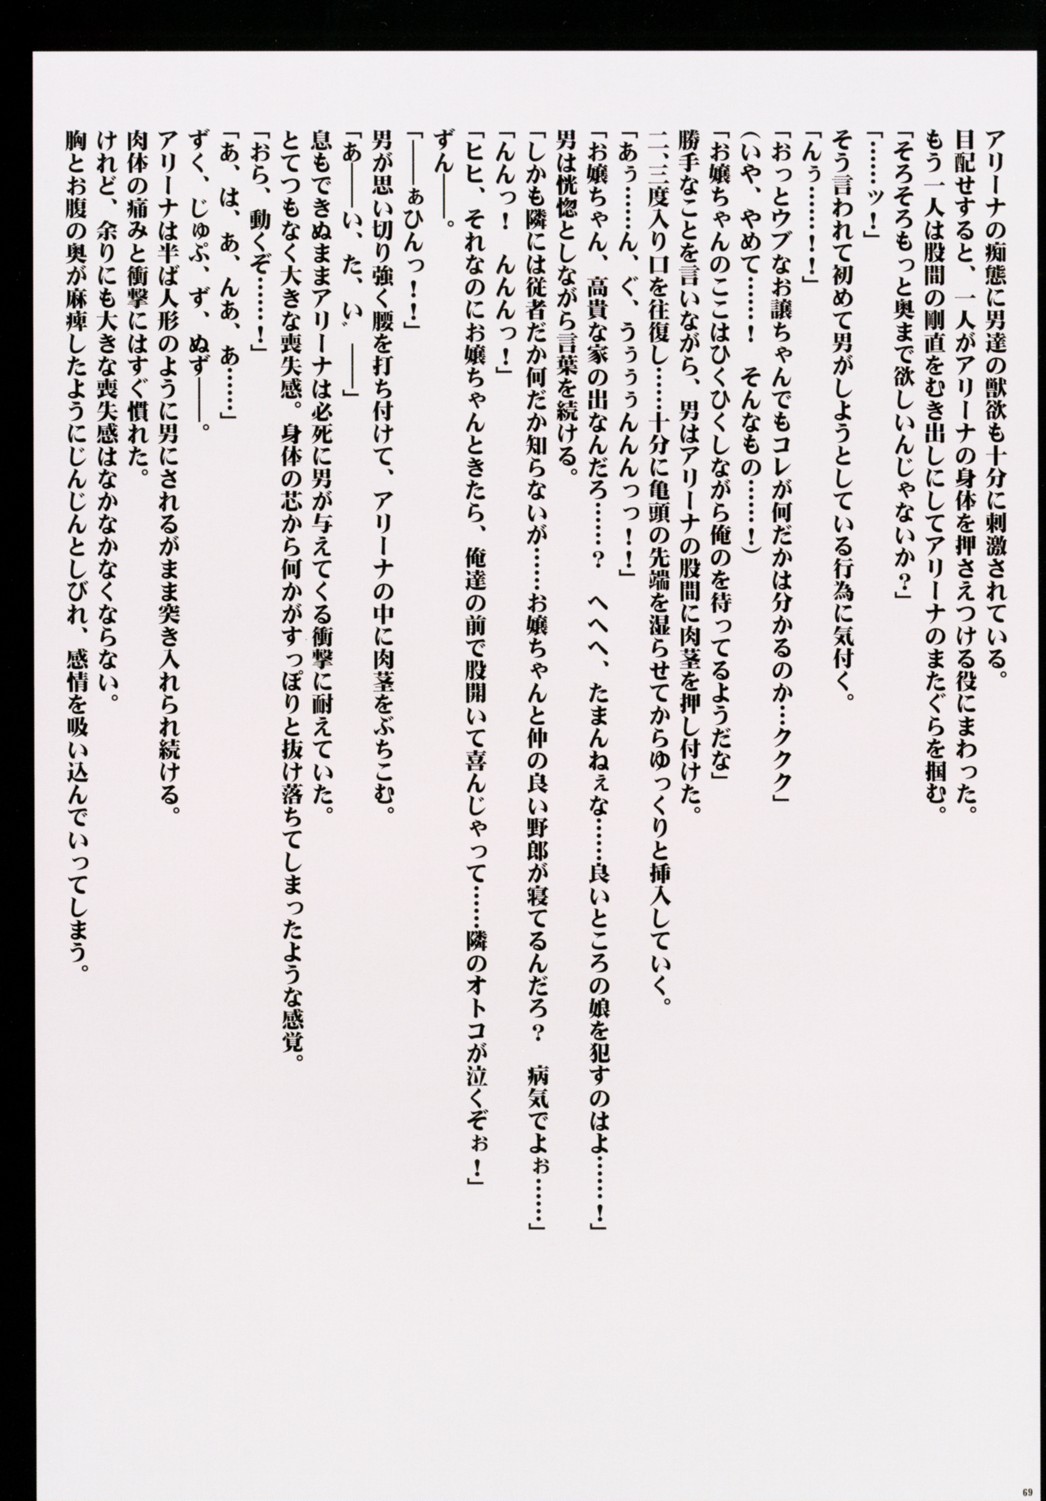 アリーナの痴態に男達の獣欲も十分に刺激されている。
目配せすると、一人がアリーナの身体を押さえつける役にまわった。
もう一人は股間の剛直をむき出しにしてアリーナのまたぐらを掴む。
「そろそろもっと奥まで欲しいんじゃないか？」
「……ッ！」
そう言われて初めて男がしようとしている行為に気付く。
「んぅ……！！」
「おっとウブなお譲ちゃんでもコレが何だかは分かるのか…ククク」
（いや、やめて……！　そんなもの……！）
「お嬢ちゃんのここはひくひくしながら俺のを待ってるようだな」
勝手なことを言いながら、男はアリーナの股間に肉茎を押し付けた。
二、三度入り口を往復し……十分に亀頭の先端を湿らせてからゆっくりと挿入していく。
「あぅ……ん、ぐ、うぅぅぅんんんっっ！！」
「お嬢ちゃん、高貴な家の出なんだろ……？　へへへ、たまんねぇな……良いところの娘を犯すのはよ……！」
男は恍惚としながら言葉を続ける。
「しかも隣には従者だか何だか知らないが……お嬢ちゃんと仲の良い野郎が寝てるんだろ？　病気でよぉ……」
「んんっ！　んんんっ！」
「ヒヒ、それなのにお嬢ちゃんときたら、俺達の前で股開いて喜んじゃって……隣のオトコが泣くぞぉ！」
ずん――。
「――ぁひんっ！！」
男が思い切り強く腰を打ち付けて、アリーナの中に肉茎をぶちこむ。
「あ――い、た、い゛――」
息もできぬままアリーナは必死に男が与えてくる衝撃に耐えていた。
とてつもなく大きな喪失感。身体の芯から何かがすっぽりと抜け落ちてしまったような感覚。
「おら、動くぞ……！」
「あ、は、あ、んあ、あ……」
ずく、じゅぷ、ず、ぬず――。
アリーナは半ば人形のように男にされるがまま突き入れられ続ける。
肉体の痛みと衝撃にはすぐ慣れた。
けれど、余りにも大きな喪失感はなかなかなくならない。
胸とお腹の奥が麻痺したようにじんじんとしびれ、感情を吸い込んでいってしまう。
69